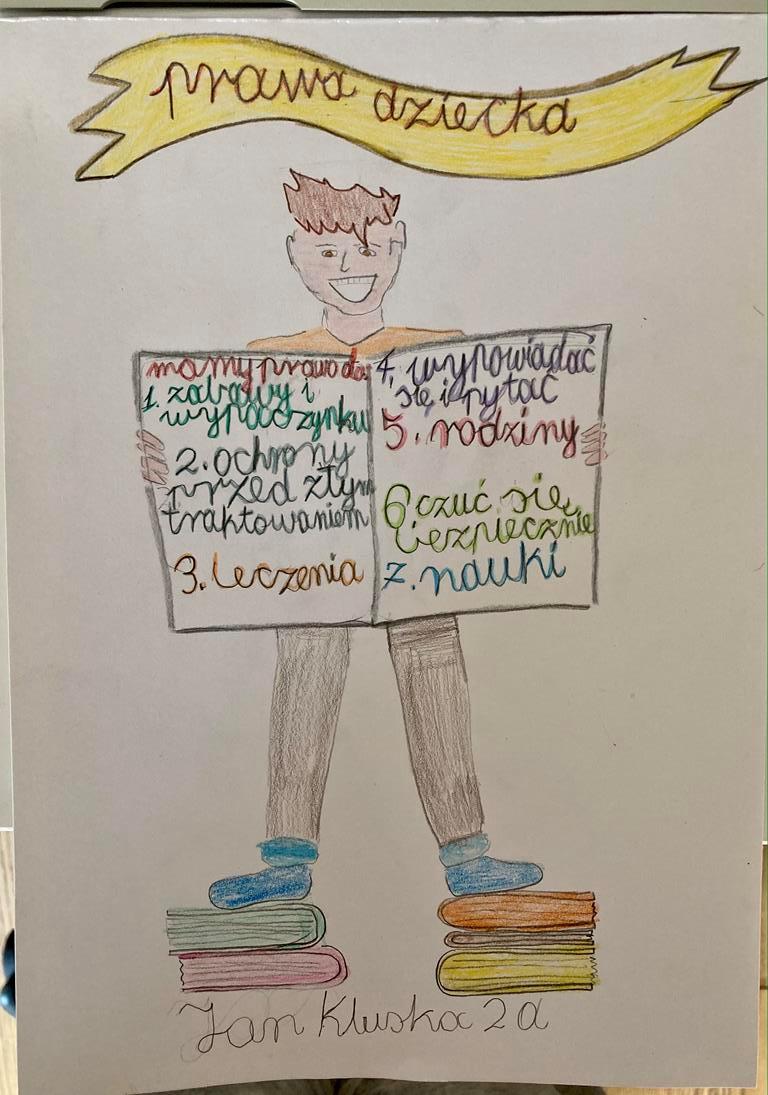 prawa dziecka
mamy prawo do:
1. zabawy i
wypoczynku
2. ochrony
przed złym
traktowaniem
3. leczenia
4. wypowiadać
się i pytać
5. rodziny
6 czuć się
bezpiecznie
7. nauki
Jan Kluska 2a